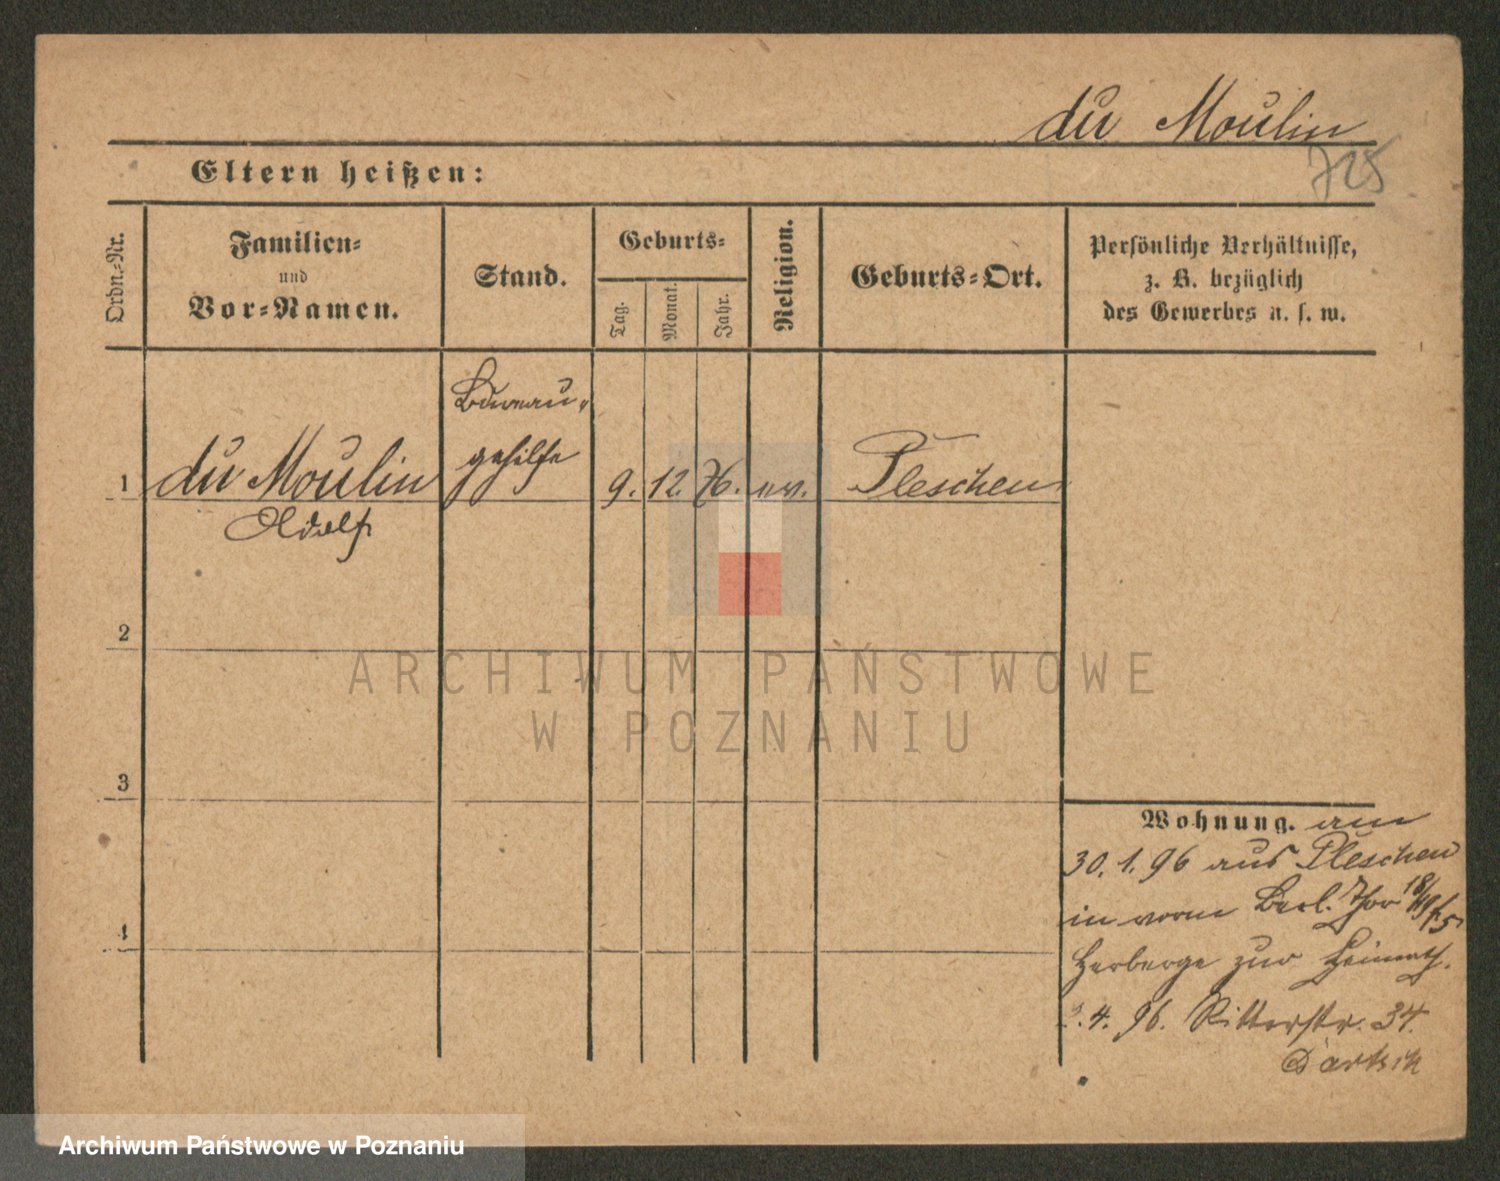 du Moulin
725
Eltern heißen:
Ordn.-Nr.
Familien-
und
Vor-Namen.
Stand.
Geburts-
Tag.
Monat.
Jahr.
Religion.
Geburts-Ort.
Persönliche Verhältnisse,
z. B. bezüglich
des Gewerbes u. s. w.
1
du Moulin
Adolf
Bureau-
gehilfe
9. 12. 76. ev. Pleschen
2
3
4
Wohnung. am
30. 1. 96 aus Pleschen
in vorm Berl. Thor 18/19 b. 5
Herberge zur Heimath.
.4. 96. Ritterstr. 34
ARCHIWUM PAŃSTWOWE
W POZNANIU
Archiwum Państwowe w Poznaniu